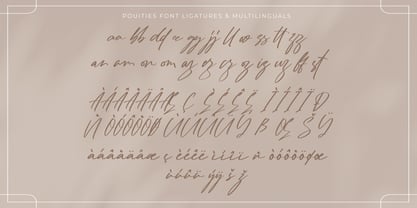 POUITIES FONT LIGATURES & MULTILINGUALS
aa bb dd ee gg jj ll oo ss tt zz
an am on om ag eg cg og ig ug ff st
ÀÁÂÃÄÅÆ Ç ÈÉÊË ÌÍÎÏ Ð
Ñ ÒÓÔÕÖØ ÙÚÛÜ Ý ß Œ Š Ÿ
àáâãäåæ ç èéêë ìíîï ñ òóôõöøœ
ùúûü ýÿ š ž